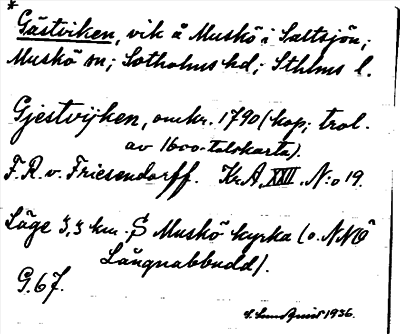 * Gästviken, vik å Muskö i Saltsjön;
Muskö sn; Sotholms hd; Sthlms l.
Gjestvijken, omkr. 1790 (kop; trol.
av 1600-talskarta).
F. R. v. Friesendorff. Kr. A. XXII. N:o 19.
Läge 3,3 km. S Muskö kyrka (o. NNO
Långnabbudd).
G. 67.
1936.